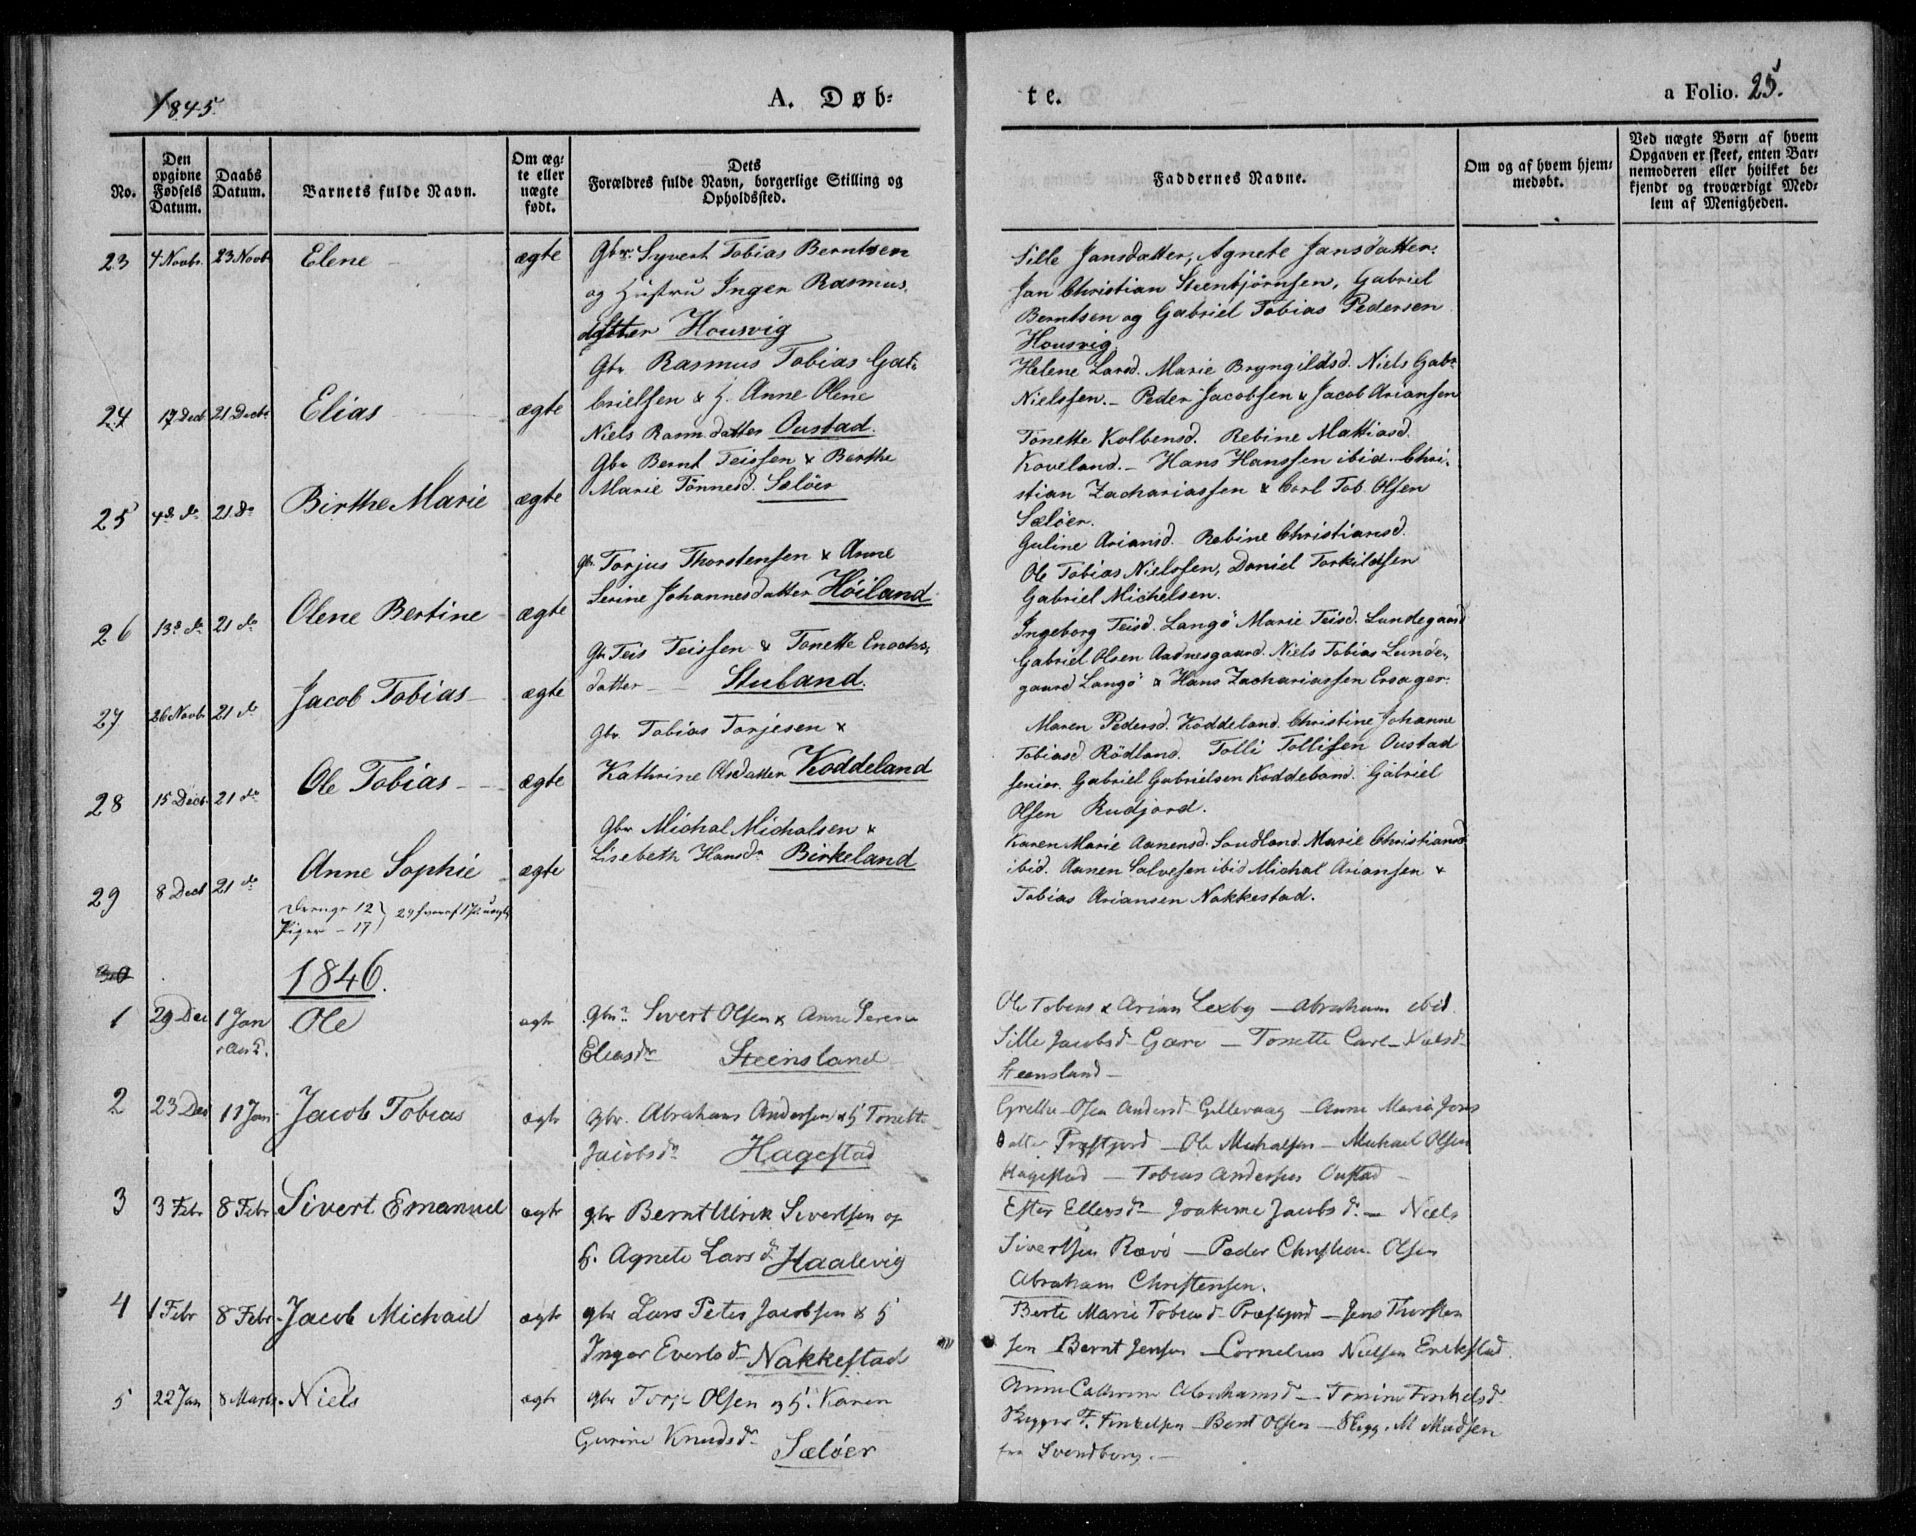 1845.
A. Døb-
te.
a Folio. 25.
No.
Den opgivne Fødsels Datum.
Daabs Datum.
Barnets fulde Navn.
Om ægte eller uægte født.
Dets Forældres fulde Navn, borgerlige Stilling og Opholdssted.
Faddernes Navne.
Om og af hvem hjemmedøbt.
Ved uægte Børn af hvem Opgaven er skeet, enten Barnemoderen eller hvilket bekjendt og troværdigt Medlem af Menigheden.
23 4 Novbr. 23 Novb Elene ægte
Gbr. Syvert Tobias Berntsen
og Hustru Inger Rasmus-
datter Housvig
Sille Jansdatter, Agnete Jansdatter.
Jan Christian Steentjörnsen, Gabriel
Berntsen og Gabriel Tobias Pedersen
Housvig.
24 17 Decb 21 Decbr Elias ægte
Gbr. Rasmus Tobias Gab-
brielsen & H. Anne Olene
Niels Rasm datter Oustad.
Helene Larsd. Marie Bryngildsd. Niels Gabr.
Nielssen. Peder Jacobsen & Jacob Ariansen
25 4de do 21 Do Birthe Marie ægte
Gbr Bernt Teissen & Berthe
Marie Tönnesd. Sælöer
Tonette Kolbensd. Rebine Mattiasd.
Koveland. - Hans Hanssen ibid. Chri-
stian Zachariassen & Carl Tob. Olsen
Sælöer.
26 13de do 21 do Olene Bertine ægte
Gbr Torjus Thorstensen & Anne
Serine Johannesdatter Höiland.
Guline Ariansd. Rebine Christiansd.
Ole Tobias Nielssen, Daniel Torkildsen
Gabriel Michelsen.
27 26 Novb 21 do Jacob Tobias ægte
Gbr Teis Teissen & Tonette Enochs-
datter - Stuland.
Ingeborg Teisd. Langö Marie Teisd. Lundegaard
Gabriel Olsen Aadnesgaard. Niels Tobias Lunde-
gaard Langö & Hans Zachariassen Ersager.
28 15 Decb 21 do Ole Tobias ægte
Gbr. Tobias Torjesen &
Kathrine Olsdatter Koddeland
Maren Pedersd. Koddeland. Christine Johanne
Tobiasd Rödland. Tolli Tollisen Oustad
senior. Gabriel Gabrielsen Koddeland. Gabriel
Olsen Rudjord.
29 8 Decb 21 do Anne Sophie ægte
Gbr Michal Michalsen &
Lisebeth Hansdr Birkeland
Karen Marie Aanensd. Soudland. Marie Christiansd
ibid. Aanen Salvesen ibid Michal Ariansen &
Tobias Ariansen Nakkestad.
Drenge 12
Piger - 17 29 hvoraf 1 P. uægte
30
1846.
1 29 Dec 1 Jan Ole ægte
Gbr Sivert Olsen & Anne Serine
Eliasdr Steensland
Ole Tobias & Arian Lexby - Abraham ibid
Sille Jacobsd Gare - Tonette Carl-Nielsd
Steensland -
2 23 Dec 11 Jan Jacob Tobias ægte
gbr. Abraham Andersen & H Tonette
Jacobsdr Hagestad
Grethe Olsen Andersd Gillevaag - Anne Maria Jons
datter Præstjord - Ole Michalsen - Michael Olsen
Hagestad - Tobias Andersen Oustad -
3 3 Febr 8 Febr Sivert Emanuel ægte
gbr Bernt Ulrik Sivertsen og
H. Agnete Larsdr Haalevig
Ester Ellersdr - Joakime Jacobsdr. - Niels
Sivertsen Rævö - Peder Christian Olsen
Abraham Christensen.
4 1 Febr 8 Febr Jacob Michael ægte
gbr Lars Peter Jacobsen & H
Inger Evertsd Nakkestad
Berte Marie Tobiasd Præstjord - Jens Thorsten
sen Bernt Jensen - Cornelius Nielsen Erikstad
5 22 Jan 8 Marts Niels ægte
gbr Torje Olsen og H. Karen
Gurine Knudsdr Sælöer
Anne Cathrine Abrahamsd - Tonine Terkelsd.
Skipper T. Terkelsen - Bernt Olsen - Skipp. M Madsen
fra Svendborg. -